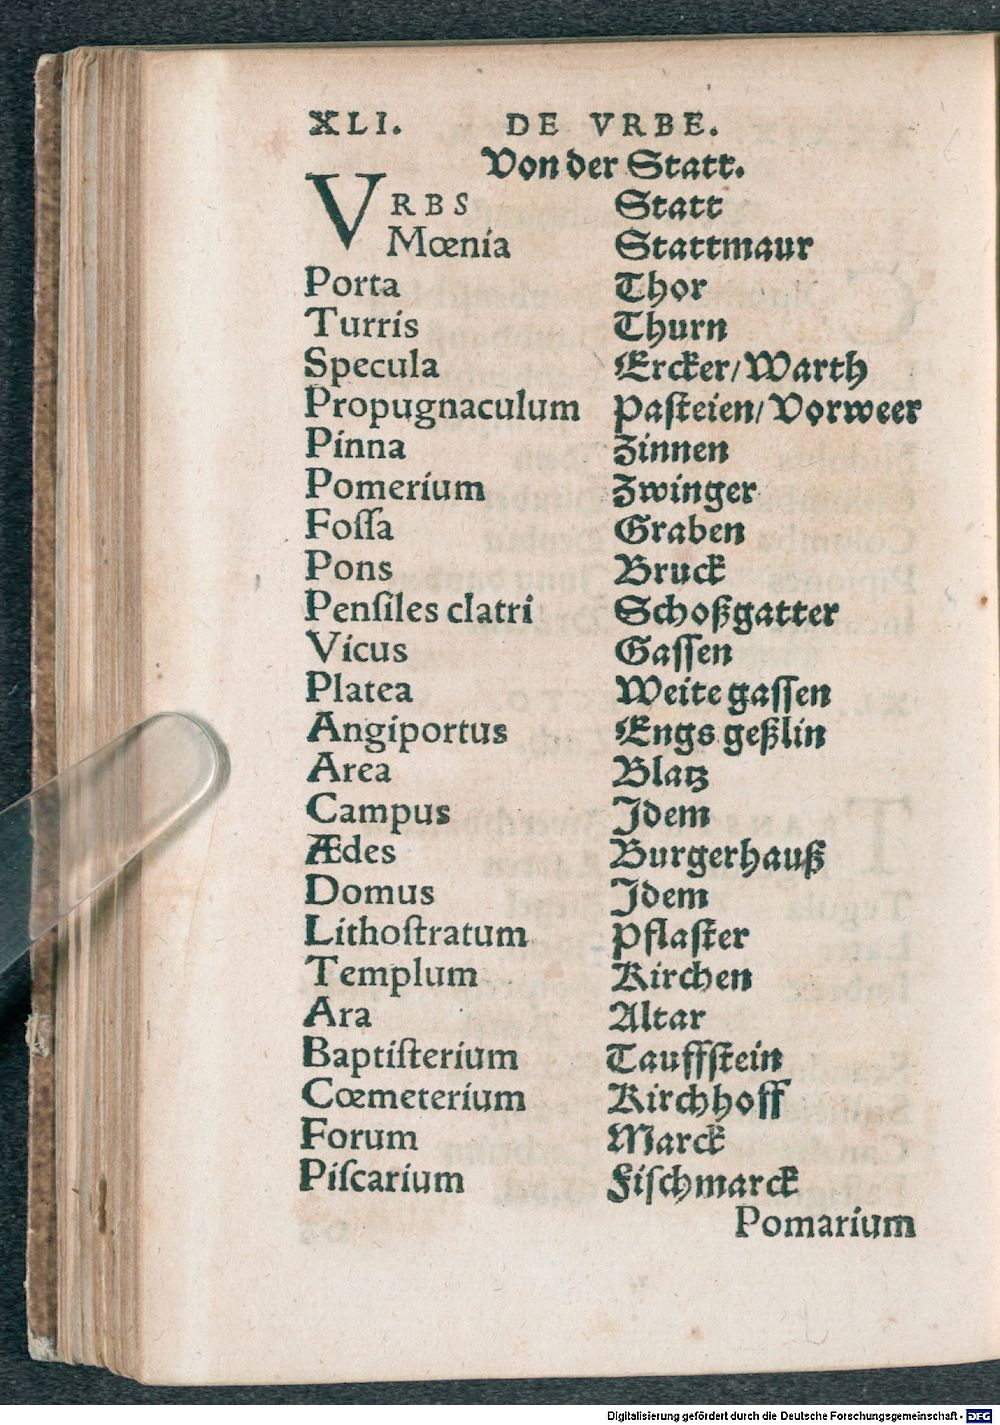 XLI. DE VRBE.
Von der Statt.
VRBS Statt
Mœnia Stattmaur
Porta Thor
Turris Thurn
Specula Ercker/Warth
Propugnaculum Paſteien/Vorweer
Pinna Zinnen
Pomerium Zwinger
Foſſa Graben
Pons Bruck
Penſiles clatri Schoßgatter
Vicus Gaſſen
Platea Weite gaſſen
Angiportus Engs geßlin
Area Blatz
Campus Idem
Ædes Burgerhauß
Domus Idem
Lithoſtratum Pflaſter
Templum Kirchen
Ara Altar
Baptiſterium Tauffſtein
Cœmeterium Kirchhoff
Forum Marck
Piſcarium Fiſchmarck
Pomarium
Digitalisierung gefördert durch die Deutsche Forschungsgemeinschaft - DFG